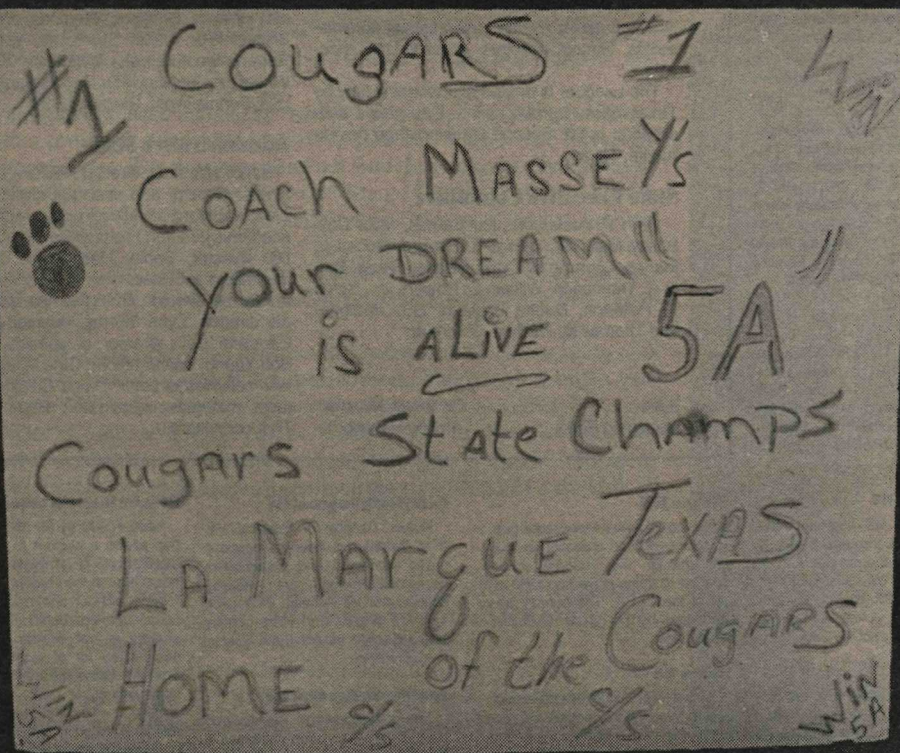 #1 COugARS #1 Win
COACh MASSEY's
your DREAM"
is ALiVE 5A"
Cougars State Champs
LA MArquE TexAS
HOME of the COugARS
WiN 5A c/s c/s Win 5A